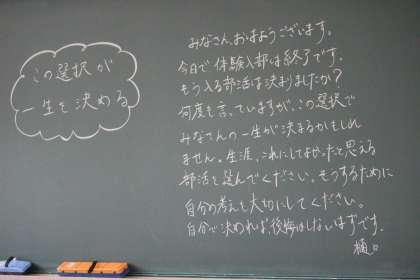 この選択が
一生を決める
みなさん、おはようございます。
今日で体験入部は終了です。
もう入る部活は決まりましたか？
何度も言っていますが、この選択で
みなさんの一生が決まるかもしれ
ません。生涯、これにしてよかったと思える
部活を選んでください。そうするために
自分の考えを大切にしてください。
自分で決めれば、後悔はしないはずです。
樋口